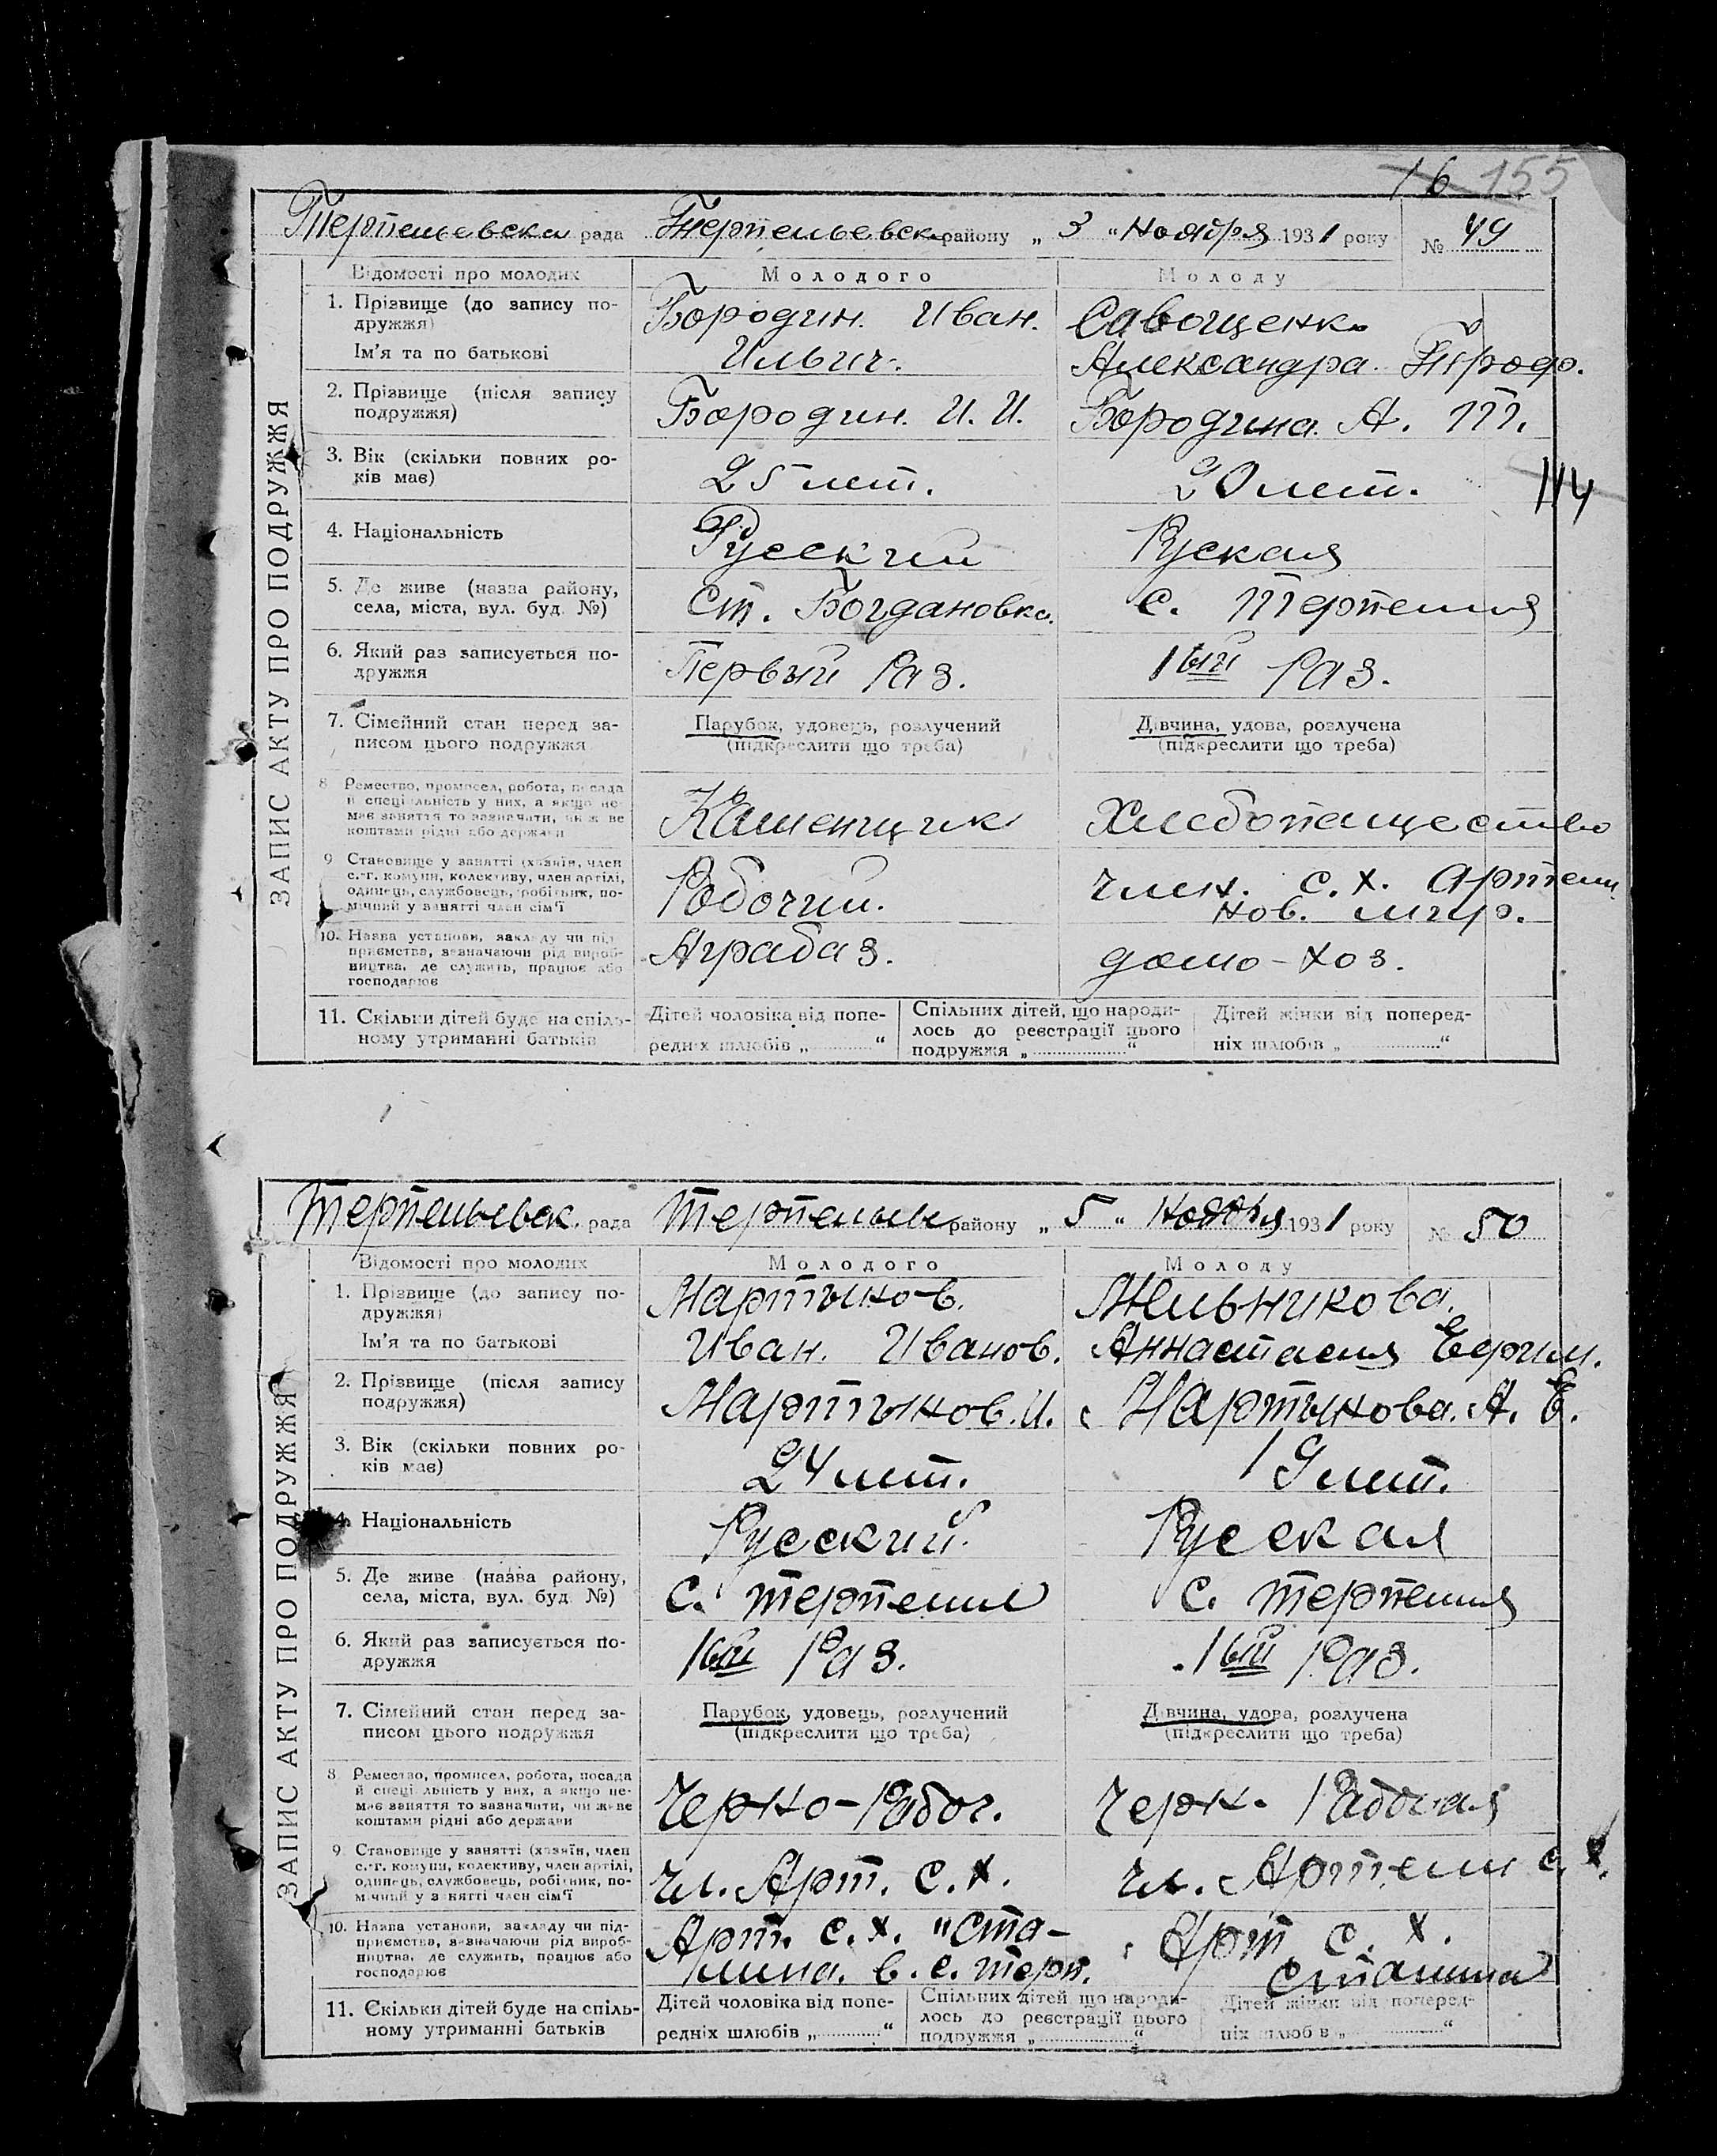 16 155
Терпеньевска рада Терпеньевск району „ 3 “ Ноября 1931 року № 49
Відомості про молодих Молодого Молоду
1. Прізвище (до запису по- Бородин. Иван. Савощенко
дружжя)
Ім'я та по батькові Ильич. Александра. Троф.
2. Прізвище (після запису Бородин. И. И. Бородина. А. Т.
подружжя)
3. Вік (скільки повних ро- 25 лет. 20 лет. 114
ків має)
4. Національність Русский Руская
5. Де живе (назва району,
села, міста, вул. буд. №) Ст. Богдановка. С. Терпения
6. Який раз записується по- Первый Раз. 1ый Раз.
дружжя
7. Сімейний стан перед за- Парубок, удовець, розлучений Дівчина, удова, розлучена
писом цього подружжя (підкреслити що треба) (підкреслити що треба)
8 Ремество, промисел, робота, посада
й спеціальність у них, а якщо не-
має заняття то зазначати, чи живе Каменщик Хлебопащество
коштами рідні або держави
9 Становище у занятті (хазяїн, член
с.-г. комуни, колективу, член артілі, член. С. Х. Артели
одинець, службовець, робітник, по- Рабочий. нов. мир.
мічний у занятті член сім'ї
10. Назва установи, закладу чи під-
приємства, зазначаючи рід вироб- Аграбаз. домо-хоз.
ництва, де служить, працює або
господарює
11. Скільки дітей буде на спіль- Дітей чоловіка від попе- Спільних дітей, що народи- Дітей жінки від поперед-
ному утриманні батьків редніх шлюбів „ “ лось до реєстрації цього ніх шлюбів „ “
подружжя „ “
ЗАПИС АКТУ ПРО ПОДРУЖЖЯ
Терпеньевск. рада Терпеньевс району „ 5 “ Ноября 1931 року № 50
Відомості про молодих Молодого Молоду
1. Прізвище (до запису по- Мартынов. Мельникова.
дружжя)
Ім'я та по батькові Иван. Иванов. Аннастасия Ефим.
2. Прізвище (після запису Мартынов. И. Мартынова. А. Е.
подружжя)
3. Вік (скільки повних ро- 24 лет. 19 лет.
ків має)
4. Національність Русский. Русская
5. Де живе (назва району,
села, міста, вул. буд. №) С. Терпение С. Терпения
6. Який раз записується по- 1ый Раз. 1ый Раз.
дружжя
7. Сімейний стан перед за- Парубок, удовець, розлучений Дівчина, удова, розлучена
писом цього подружжя (підкреслити що треба) (підкреслити що треба)
8 Ремество, промисел, робота, посада
й спеціальність у них, а якщо не-
має заняття то зазначати, чи живе Черно-Рабоч. Черн. Рабочая
коштами рідні або держави
9 Становище у занятті (хазяїн, член
с.-г. комуни, колективу, член артілі, Чл. Арт. С. Х. Чл. Артели С. Х.
одинець, службовець, робітник, по-
мічний у занятті член сім'ї
10. Назва установи, закладу чи під- Арт. С. Х. "Ста- Арт С. Х.
приємства, зазначаючи рід вироб-
ництва, де служить, працює або лина. в. с. Терп. Сталина
господарює
11. Скільки дітей буде на спіль- Дітей чоловіка від попе- Спільних дітей що народи- Дітей жінки від поперед-
ному утриманні батьків редніх шлюбів „ “ лось до реєстрації цього ніх шлюбів „ “
подружжя „ “
ЗАПИС АКТУ ПРО ПОДРУЖЖЯ